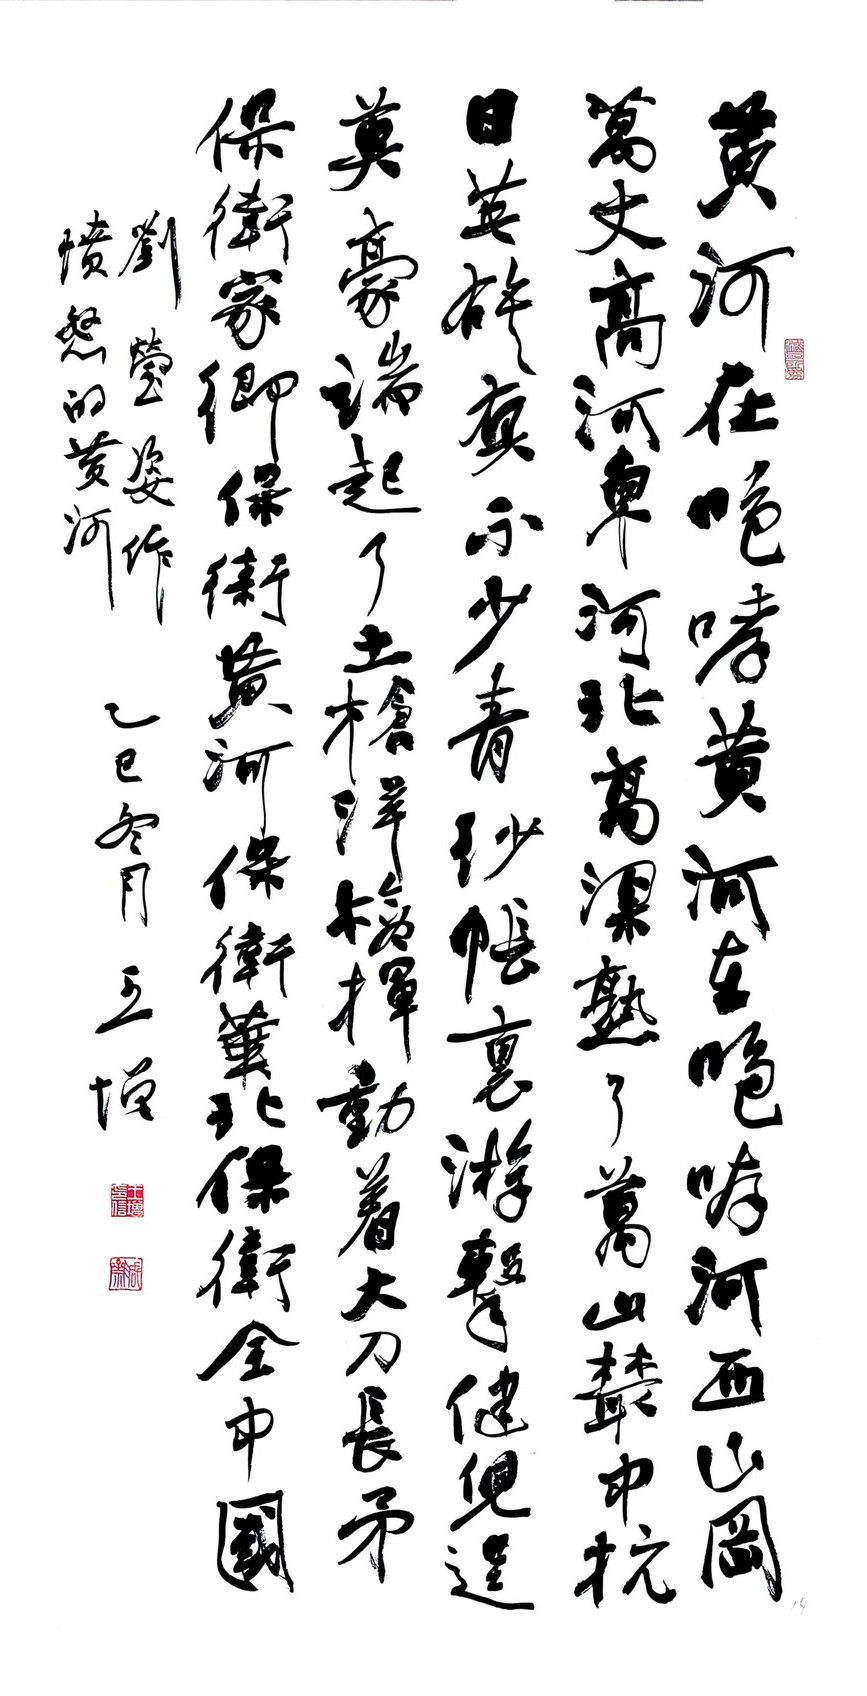 黄河在咆哮黄河在咆哮河西山岡
萬丈高河東河北高梁熟了萬山叢中抗
日英雄真不少青紗帳裏游擊健兒逞
英豪端起了土槍洋槍揮動着大刀長矛
保衛家鄉保衛黄河保衛華北保衛全中國
劉瑩姿作
憤怒的黄河
乙巳冬月 王增
14